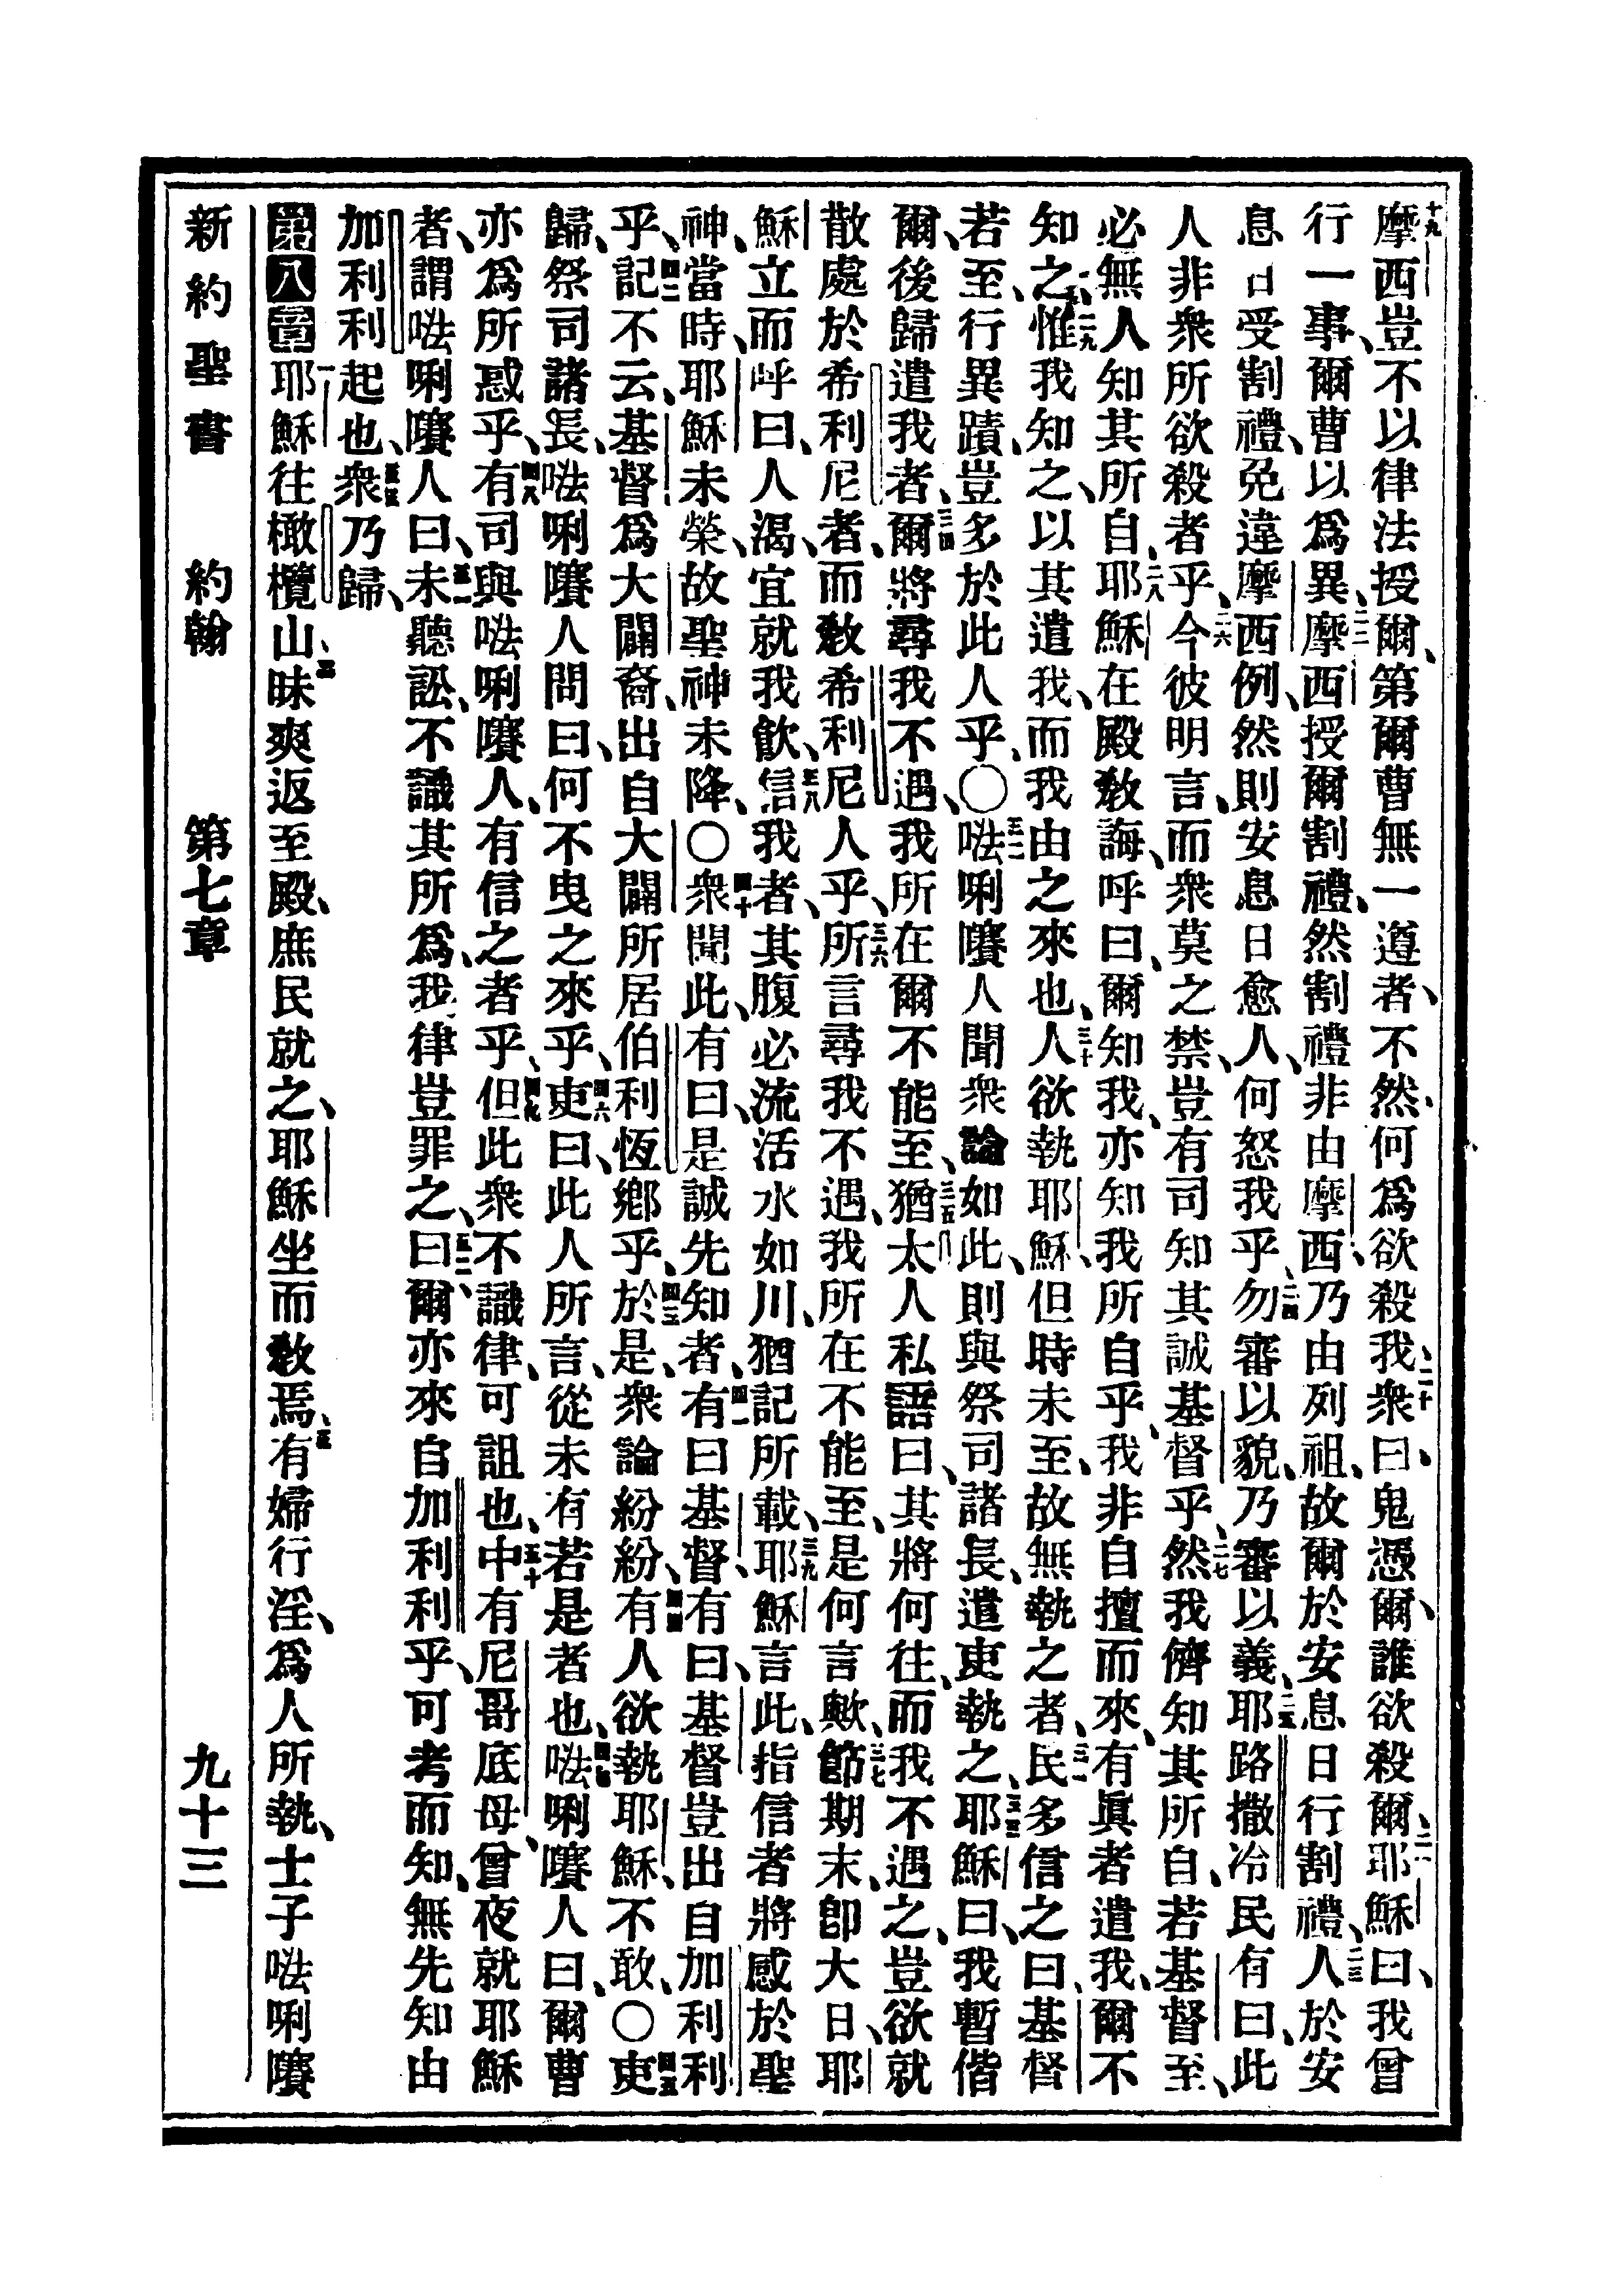 十九摩西豈不以律法授爾、第爾曹無一遵者、不然、何爲欲殺我、二十衆曰、鬼憑爾、誰欲殺爾、二一耶穌曰、我曾
行一事、爾曹以爲異、二二摩西授爾割禮、然割禮非由摩西、乃由列祖、故爾於安息日行割禮、二三人於安
息日受割禮、免違摩西例、然則安息日愈人、何怒我乎、二四勿審以貌、乃審以義、二五耶路撒冷民有曰、此
人非衆所欲殺者乎、二六今彼明言、而衆莫之禁、豈有司知其誠基督乎、二七然我儕知其所自、若基督至、
必無人知其所自、二八耶穌在殿敎誨、呼曰、爾知我、亦知我所自乎、我非自擅而來、有眞者遣我、爾不
知之、二九惟我知之、以其遣我、而我由之來也、三十人欲執耶穌、但時未至、故無執之者、三一民多信之曰、基督
若至、行異蹟、豈多於此人乎、〇三二𠵽唎㘔人聞衆論如此、則與祭司諸長、遣吏執之、三三耶穌曰、我暫偕
爾、後歸遣我者、三四爾將尋我不遇、我所在爾不能至、三五猶太人私語曰、其將何往、而我不遇之、豈欲就
散處於希利尼者、而敎希利尼人乎、三六所言尋我不遇、我所在不能至、是何言歟、三七節期末、卽大日、耶
穌立而呼曰、人渴、宜就我飮、三八信我者、其腹必流活水如川、猶記所載、三九耶穌言此、指信者將感於聖
神、當時、耶穌未榮、故聖神未降、〇四十衆聞此、有曰、是誠先知者、四一有曰基督、有曰、基督豈出自加利利
乎、四二記不云、基督爲大闢裔、出自大闢所居伯利恆鄉乎、四三於是、衆論紛紛、四四有人欲執耶穌、不敢、〇四五吏
歸、祭司諸長、𠵽唎㘔人問曰、何不曳之來乎、四六吏曰、此人所言、從未有若是者也、四七𠵽唎㘔人曰、爾曹
亦爲所惑乎、四八有司與𠵽唎㘔人、有信之者乎、四九但此衆不識律、可詛也、五十中有尼哥底母、曾夜就耶穌
者、謂𠵽唎㘔人曰、五一未聽訟、不識其所爲、我律豈罪之、五二曰爾、亦來自加利利乎、可考而知、無先知由
加利利起也、五三衆乃歸、
第八章一耶穌往橄欖山、二昧爽返至殿、庶民就之、耶穌坐而敎焉、三有婦行淫、爲人所執、士子𠵽唎㘔
新約聖書 約翰 第七章 九十三